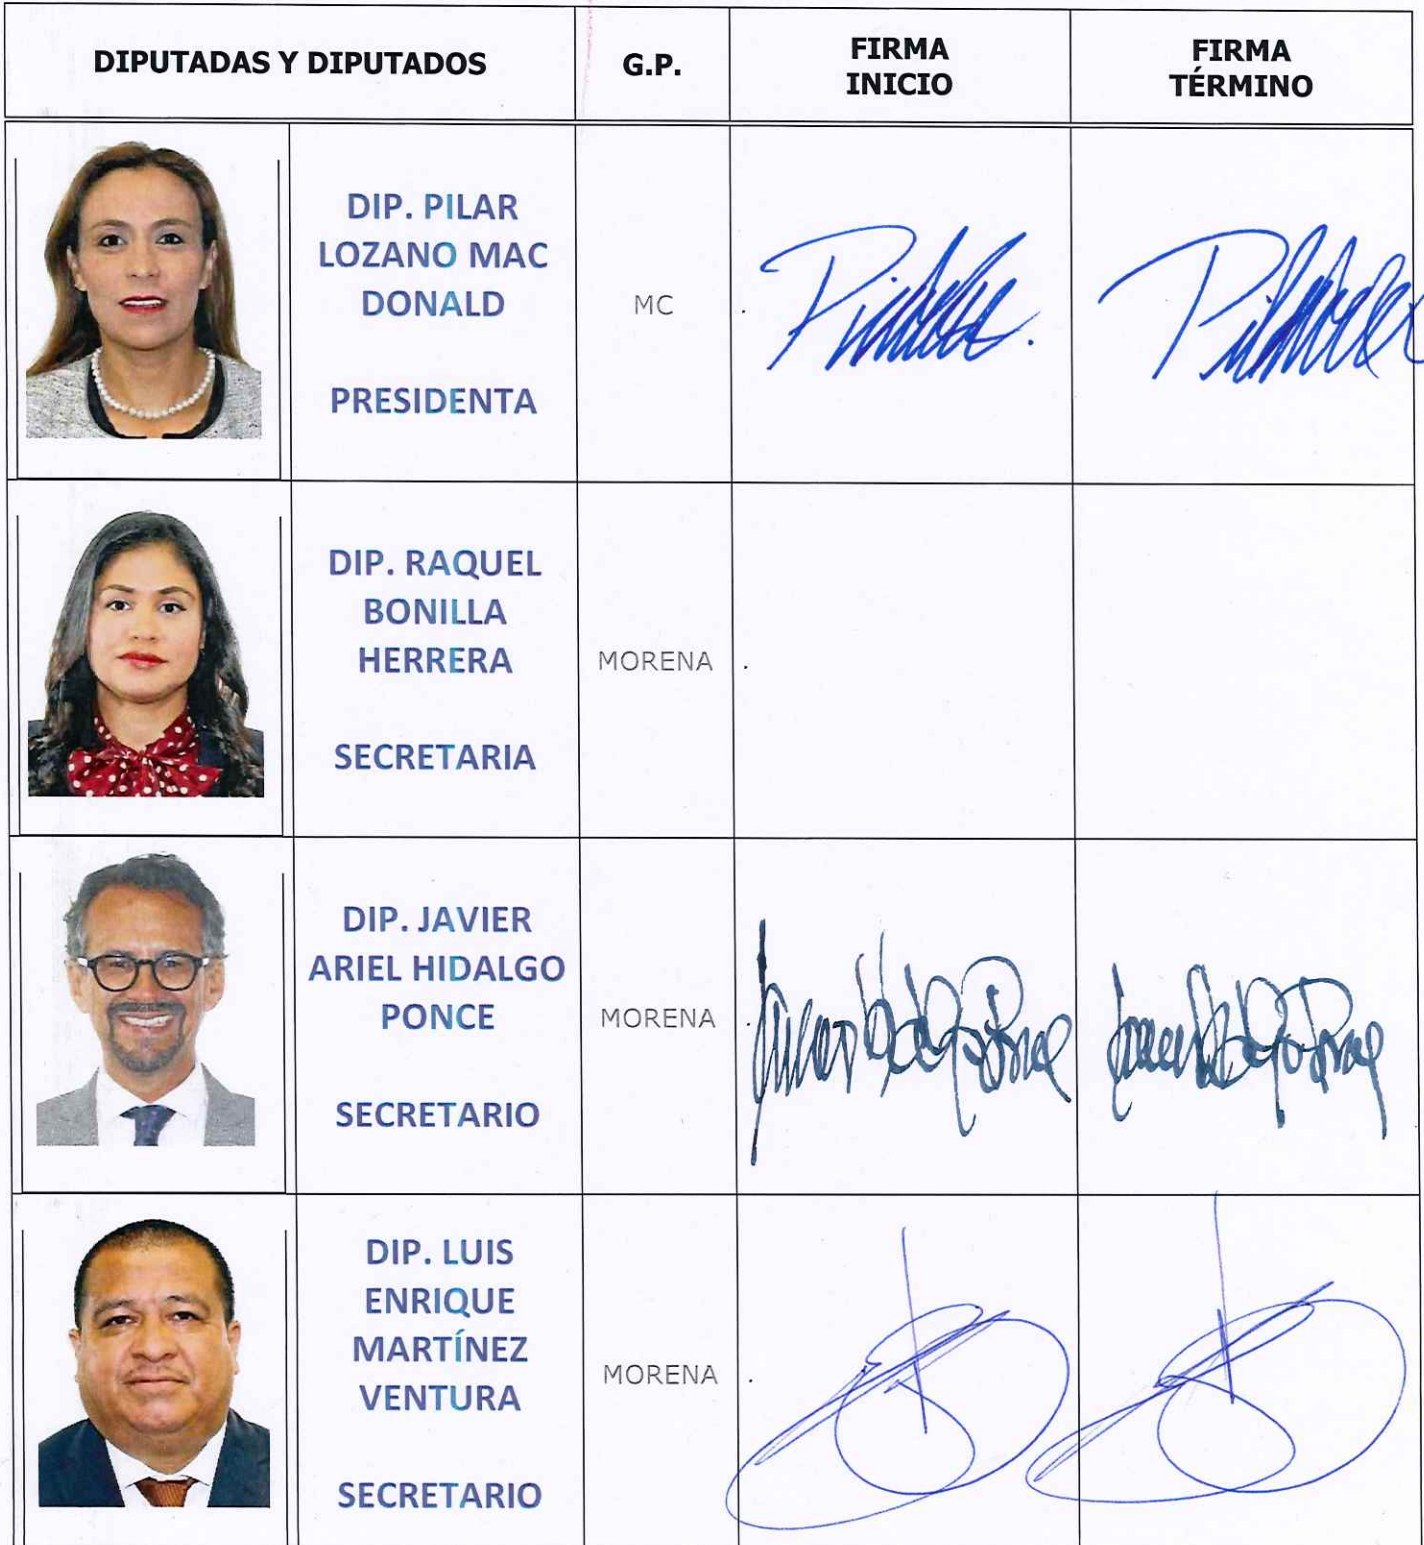 DIPUTADAS Y DIPUTADOS
G.P.
FIRMA
INICIO
FIRMA
TÉRMINO
DIP. PILAR
LOZANO MAC
DONALD
PRESIDENTA
MC
DIP. RAQUEL
BONILLA
HERRERA
SECRETARIA
MORENA
DIP. JAVIER
ARIEL HIDALGO
PONCE
SECRETARIO
MORENA
DIP. LUIS
ENRIQUE
MARTÍNEZ
VENTURA
SECRETARIO
MORENA